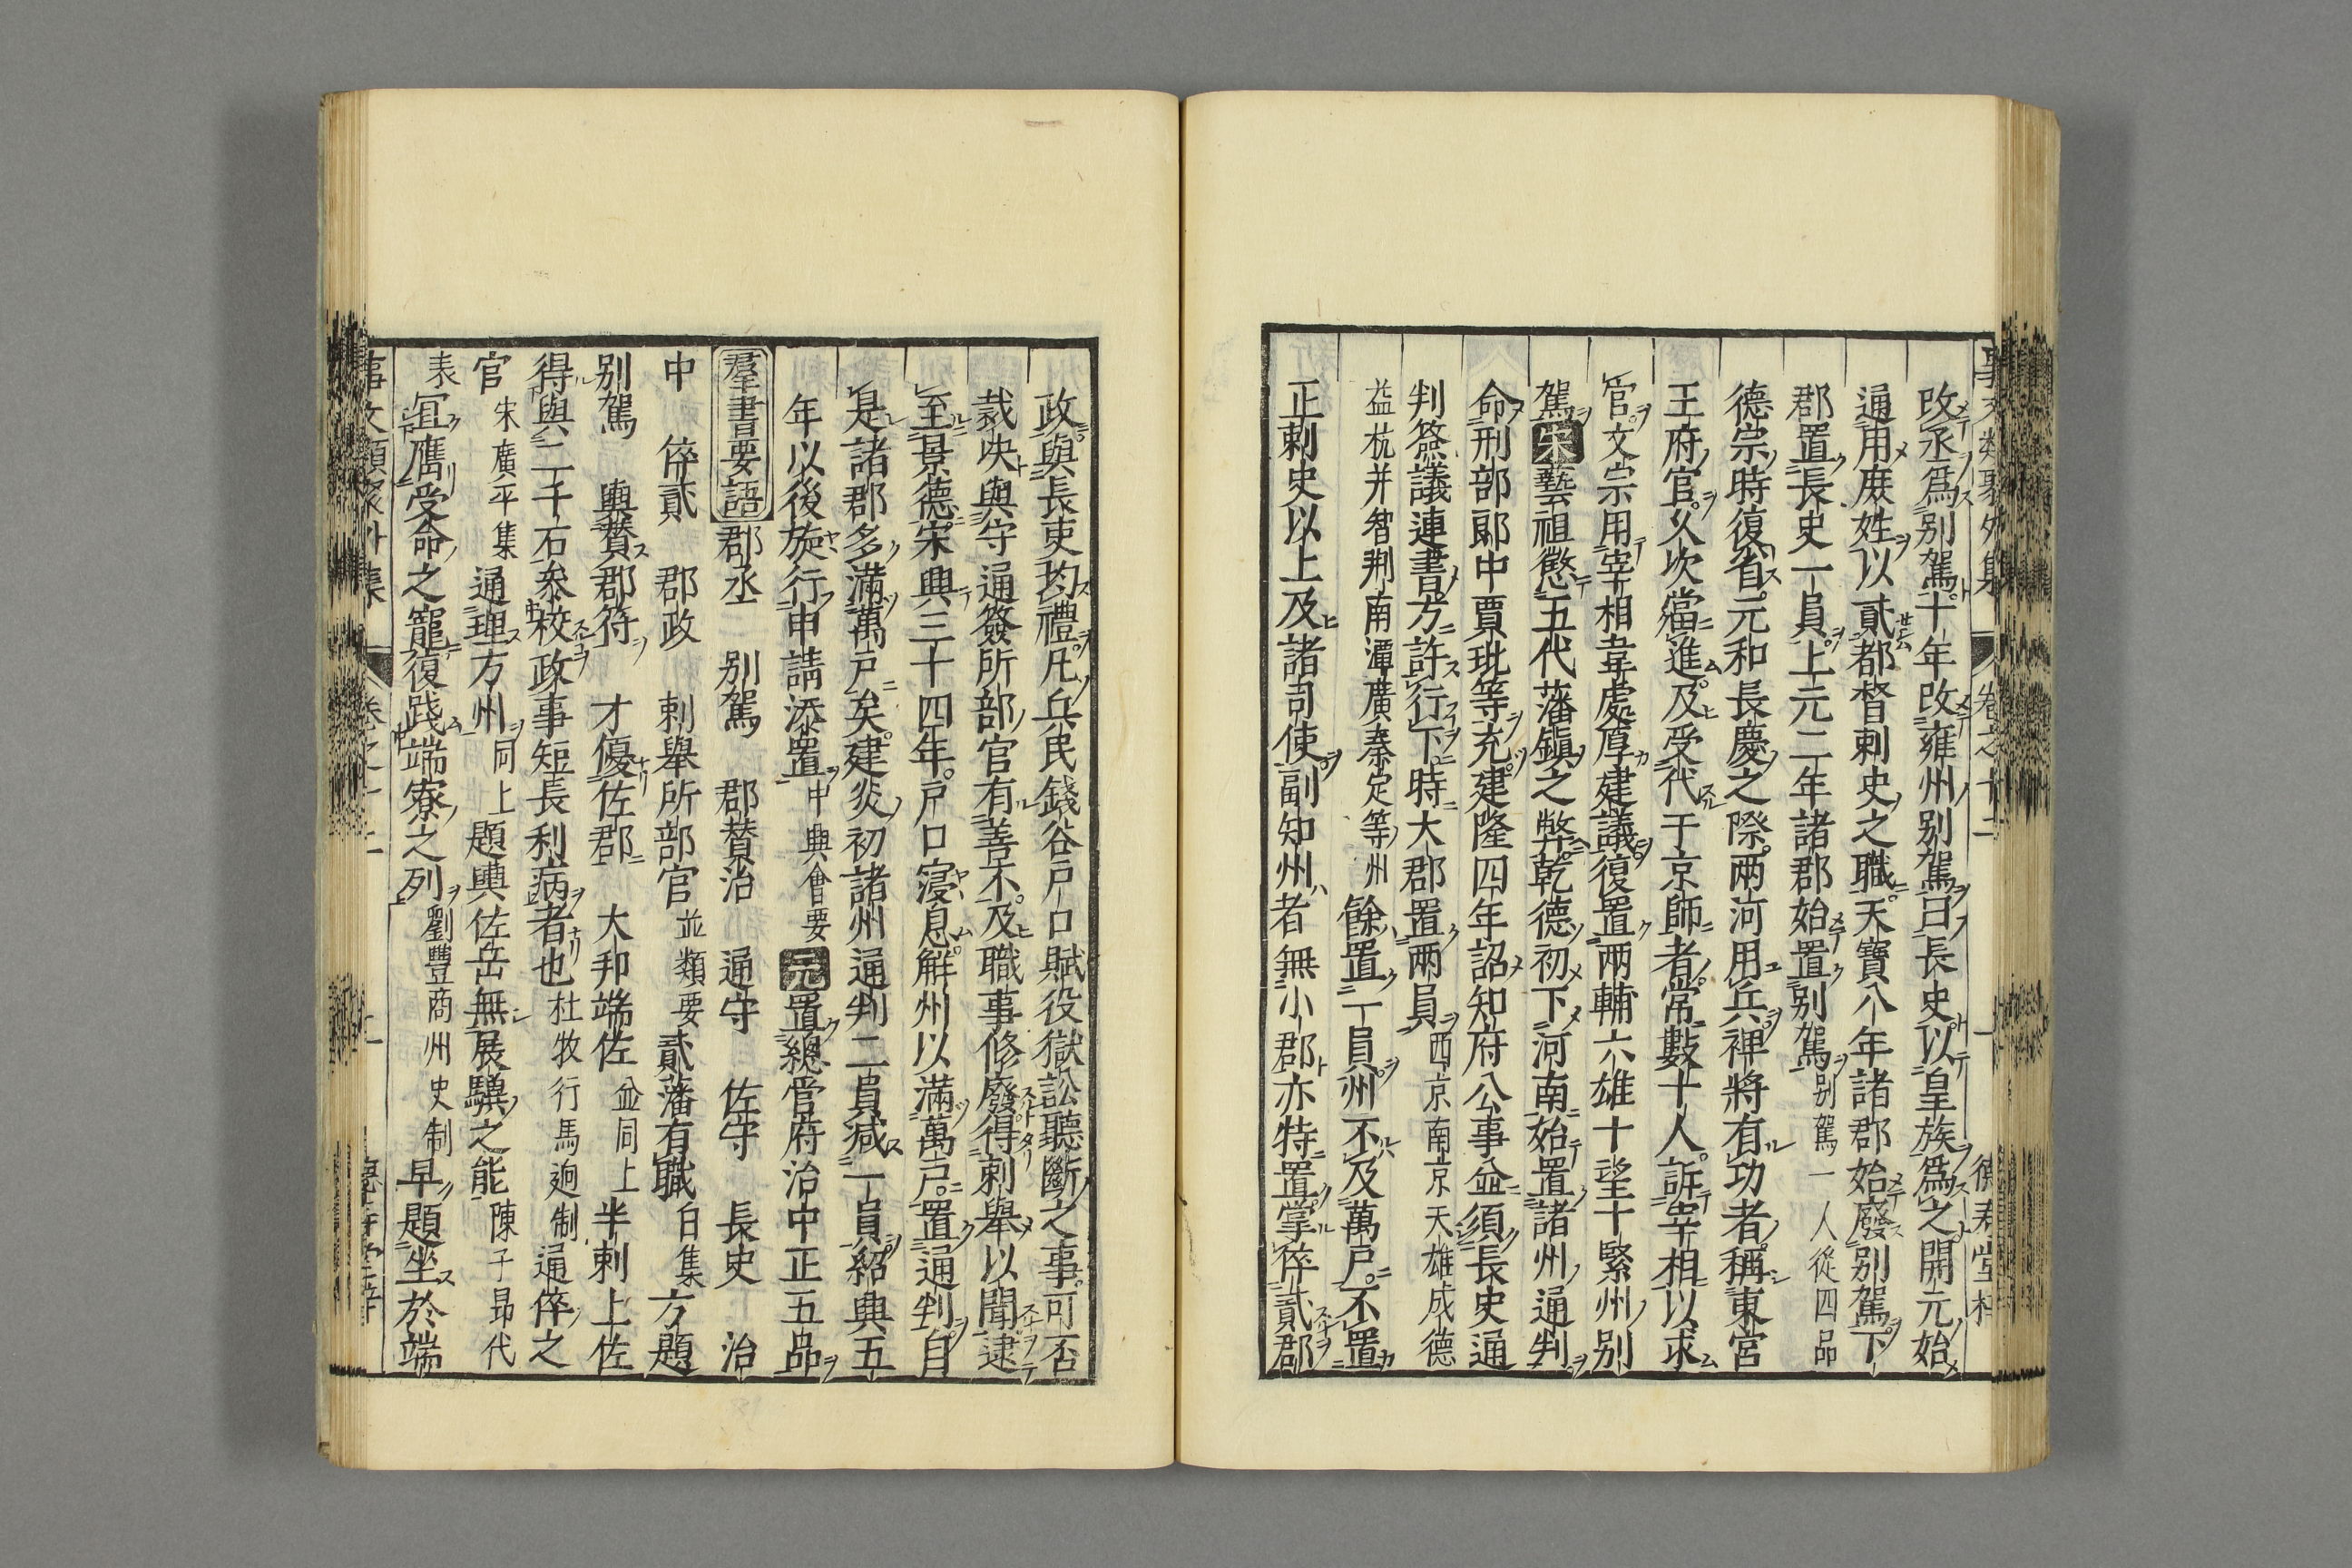 改丞爲別駕十年改雍州別駕曰長史以皇族爲之開元始
通用庶姓以貳都督刺史之職天寶八年諸郡始廢別駕下
郡置長史一員上元二年諸郡始置別駕別駕一人從四品
德宗時復省元和長慶之際兩河用兵裨將有功者稱東宮
王府官久次當進及受代于京師者常數十人訴宰相以求
官文宗用宰相韋處厚建議復置兩輔六雄十望十緊州別
駕宋藝祖懲五代藩鎭之弊乾德初下河南始置諸州通判
命刑部郎中賈玭等充建隆四年詔知府公事並須長史通
判簽議連書方許行下時大郡置兩員西京南京天雄成德
益杭并智荆南潭廣秦定等州餘置一員州不及萬戶不置
正刺史以上及諸司使副知州者無小郡亦特置掌倅貳郡
政與長吏均禮凡兵民錢谷戶口賦役獄訟聽斷之事可否
裁决與守通簽所部官有善不及職事修廢得刺舉以聞逮
至景德宋興三十四年戶口寖息解州以滿萬戶置通判自
是諸郡多滿萬戶矣建炎初諸州通判二員減一員紹興五
年以後旋行申請添置中興會要元置總管府治中正五品
羣書要語郡丞 別駕 郡贊治 通守 佐守 長史 治
中 倅貳 郡政 刺舉所部官並類要貳藩有職白集方題
別駕 輿贊郡符 才優佐郡 大邦端佐並同上半刺上佐
得與二千石叅校政事短長利病者也杜牧行馬逈制通倅之
官宋廣平集通理方州同上題輿佐岳無展驥之能陳子昻代
表宐膺受命之寵復踐端寮之列劉豐商州史制早題坐於端
事文類聚外集 卷之十二